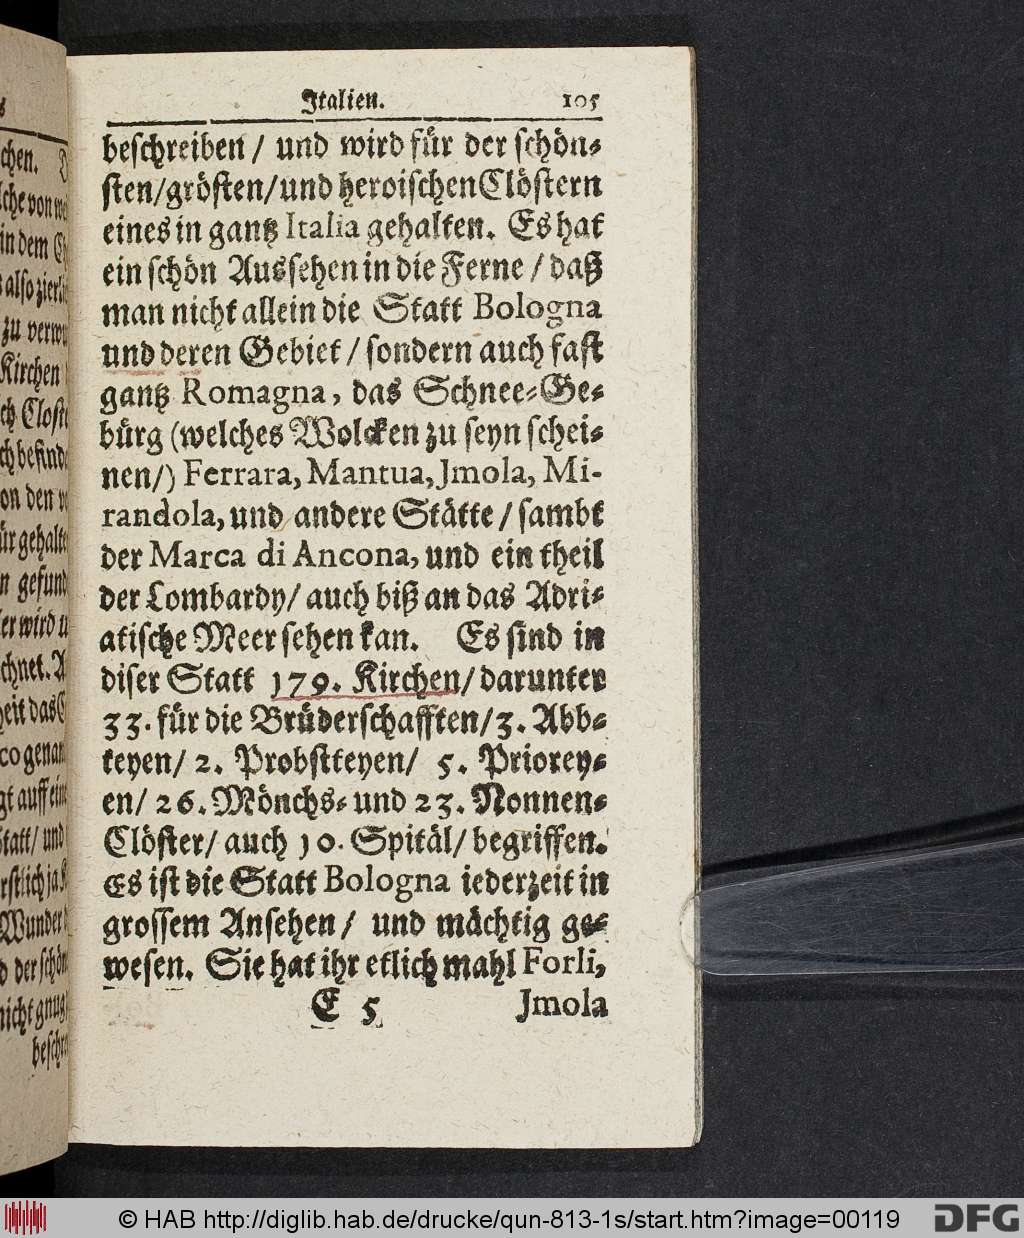 Italien. 105
beschreiben / und wird für der schön⸗
sten/grösten/und heroischen Clöstern
eines in gantz Italia gehalten. Es hat
ein schön Aussehen in die Ferne / daß
man nicht allein die Statt Bologna
und deren Gebiet / sondern auch fast
gantz Romagna, das Schnee⸗Ge⸗
bürg (welches Wolcken zu seyn schei⸗
nen/) Ferrara, Mantua, Jmola, Mi-
randola, und andere Stätte / sambt
der Marca di Ancona, und ein theil
der Lombardy/ auch biß an das Adri⸗
atische Meer sehen kan. Es sind in
diser Statt 179. Kirchen/ darunter
33. für die Brüderschafften/ 3. Abb⸗
teyen/ 2. Probsteyen/ 5. Priorey⸗
en/ 26. Mönchs⸗ und 23. Nonnen⸗
Clöster/ auch 10. Spitäl/ begriffen.
Es ist die Statt Bologna iederzeit in
grossem Ansehen / und mächtig ge⸗
wesen. Sie hat ihr etlich mahl Forli,
E 5 Jmola
© HAB http://diglib.hab.de/drucke/qun-813-1s/start.htm?image=00119
DFG